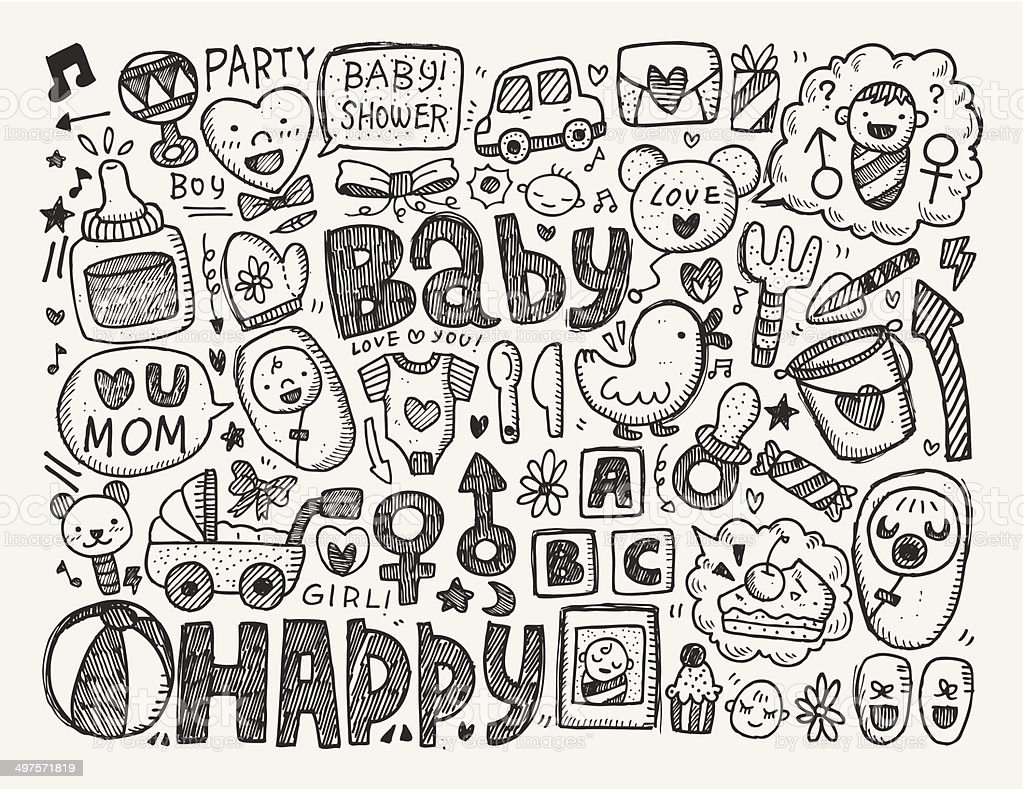 PARTY
BABY!
SHOWER
BOY
LOVE
? ?
Baby
LOVE YOU!
U
MOM
A
B C
GIRL!
HAPPY
iStock
Credit: Getty Images
497571819